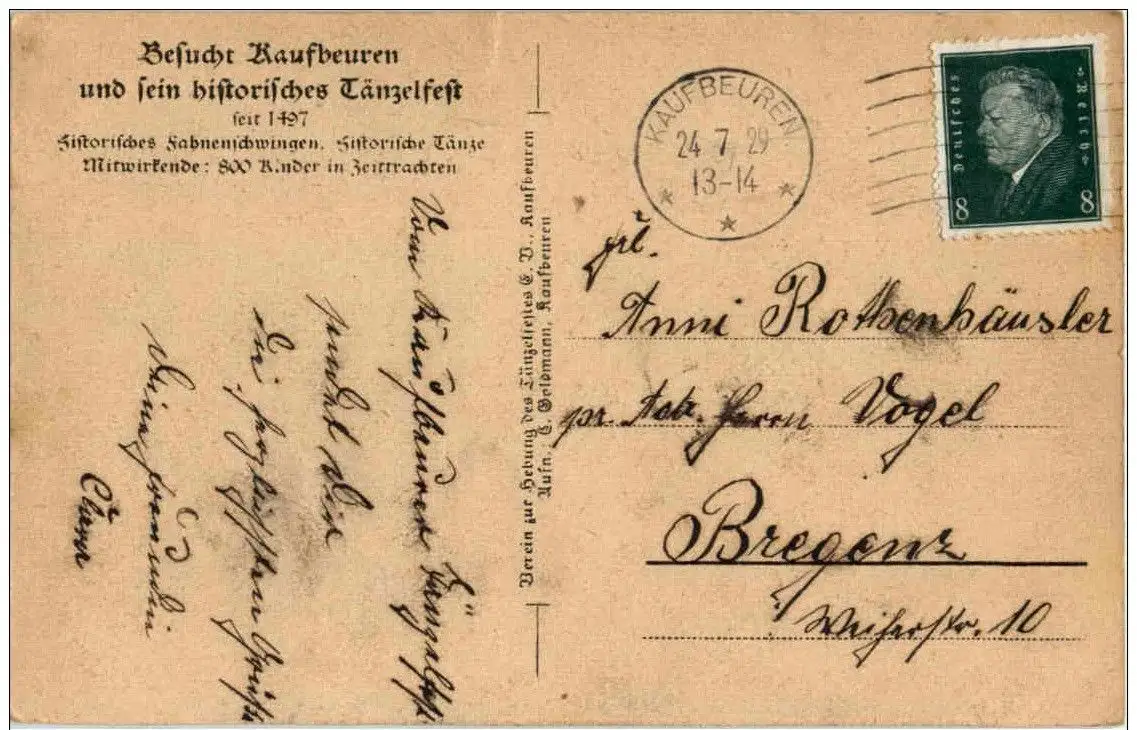 Besucht Kaufbeuren
und sein historisches Tänzelfest
seit 1497
Historisches Fahnenschwingen. Historische Tänze
Mitwirkende: 800 Kinder in Zeittrachten
Vom Kaufbeurer Tänzelfest
sendet Dir
die herzlichsten Grüße
Deine Freundin
Verein zur Hebung des Tänzelfestes E. V., Kaufbeuren
Aufn. C. Geldmann, Kaufbeuren
KAUFBEUREN
24.7.29
13-14
Deutsches Reich
8 8
Frl.
Anni Rothenhäusler
pr. Adr. Herrn Vogel
Bregenz
Weiherstr. 10